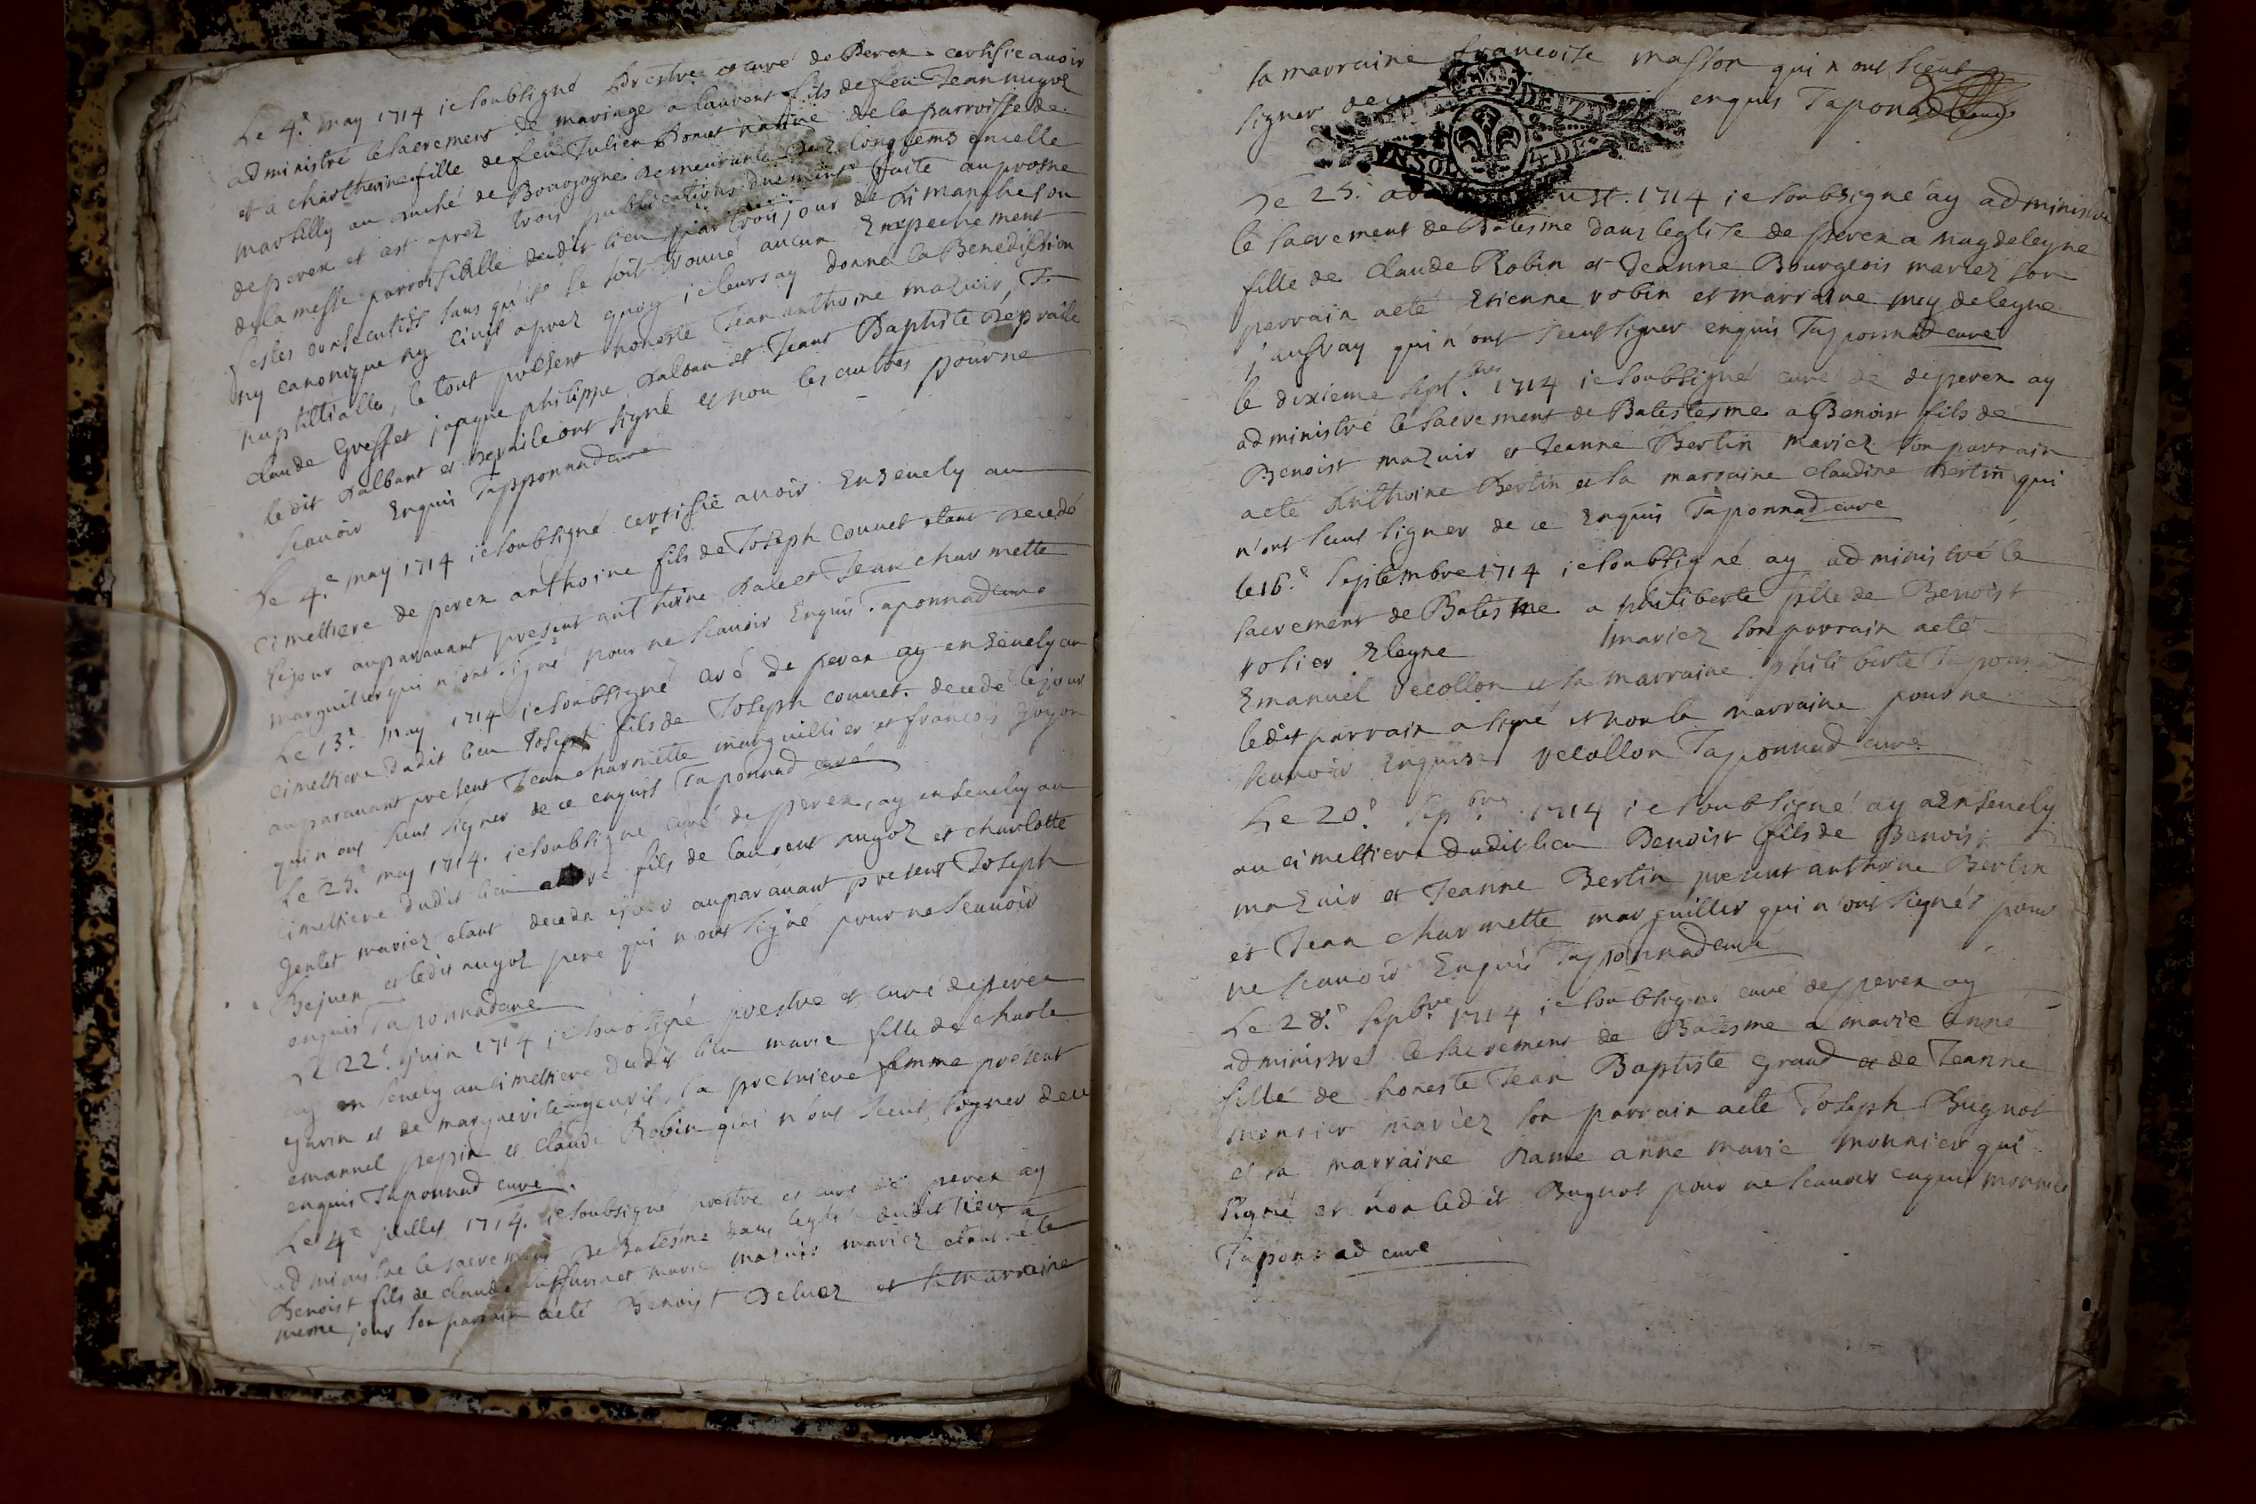 Le 4.e may 1714 ie soubsigné prestre et curé de Perex certifie auoir
administré le sacrement de mariage a laurent fils de feu Jean nugoz
et a fille de feu Julien Bonet native de la parroisse de
marsilly au duché de Bourgogne demeurante dez longtems en celle
de perex et est aprez trois publications duement faite au prosne
de la messe parroissialle dudit lieu par trois jour de dimanche ou
festes consecutifs sans qu'il se soit trouué aucun Empechement
ny canonique ny ciuil aprez quoy ie leurs ay donné la Benediction
nuptialle, le tout present honeste Jean anthoine mazuir,
claude Greffet jaque philippe Dalban et Jean Baptiste Depraile
ledit Dalbant et Depraile ont signé et non les autres pour ne
scauoir Enquis Tapponnad curé
Le 4.e may 1714 ie soubsigné certifie auoir Enseuely au
cimettiere de perex anthoine fils de Joseph couuet etant decedé
le jour auparauant present anthoine et Jean charmette
marguillier qui n'ont signé pour ne scauoir Enquis Taponnad curé
Le 13.e may 1714 ie soubsigné curé de perex ay enseuely au
cimettiere dudit lieu Joseph fils de Joseph couuet decedé le jour
auparauant present Jean charmette marguillier et francois Goyon
qui n'ont sceut signer de ce enquis Taponnad curé
Le 25.e may 1714. ie soubsigné curé de perex, ay enseuely au
cimettiere dudit lieu fils de laurent nugoz et charlotte
Genlet mariez etant decedé auparauant present Joseph
Bejuen et ledit nugoz pere qui n'ont signé pour ne scauoir
enquis Taponnad curé
Le 22.e juin 1714 ie soubsigné prestre et curé de perex
ay enseuely au cimettiere dudit lieu marie fille de charle
et de marguerite sa premiere femme present
emanuel pepin et claude Robin qui n'ont sceut signer de ce
enquis Taponnad curé.
Le 4.e juillet 1714. ie soubsigné prestre et curé de perex ay
administré le sacrement de Batesme dans leglise dudit lieu a
Benoist fils de claude et marie mazuir mariez etant né le
meme jour son parrain aeté Benoist et la marraine
la marraine francoise masson qui n'ont sceut
signer de ce enquis Taponad curé
Le 25. aoust. 1714 ie soubsigné ay administré
le sacrement de Batesme dans leglise de perex a magdeleyne
fille de claude Robin et Jeanne Bourgeois mariez son
parrain aeté Etienne robin et marraine magdeleyne
qui n'ont sceut signer enquis Taponnad curé
le dixieme sept.bre 1714 ie soubsigné curé de de perex ay
administré le sacrement de Batestesme a Benoist fils de
Benoist mazuir et Jeanne Bertin mariez son parrain
aeté Anthoine Bertin et la marraine claudine Bertin qui
n'ont sceut signer de ce Enquis Taponnad curé
le 16.e Septembre 1714 ie soubsigné ay administré le
sacrement de Batesme a philiberte fille de Benoist
rosier Eleyne mariez son parrain aeté
Emanuel recollon et la marraine philiberte Taponnad
ledit parrain a signé et non la marraine pour ne
scauoir Enquise recollon Taponnad curé.
Le 20.e sep.bre 1714 ie soubsigné ay aenseuely
au cimettiere dudit lieu Benoist fils de Benoist
mazuir et Jeanne Bertin present anthoine Bertin
et Jean charmette marguillier qui n'ont signés pour
ne scauoir Enquis Taponnad curé
Le 28.e septbre 1714 ie soubsigné curé de perex ay
administré le sacrement de Batesme a marie anne
fille de honeste Jean Baptiste Graud et de Jeanne
monnier mariez son parrain aeté Joseph Bugnot
et sa marraine Dame anne marie monnier qui
signé et non ledit Bugnot pour ne scauoir enquis monnier
Taponnad curé